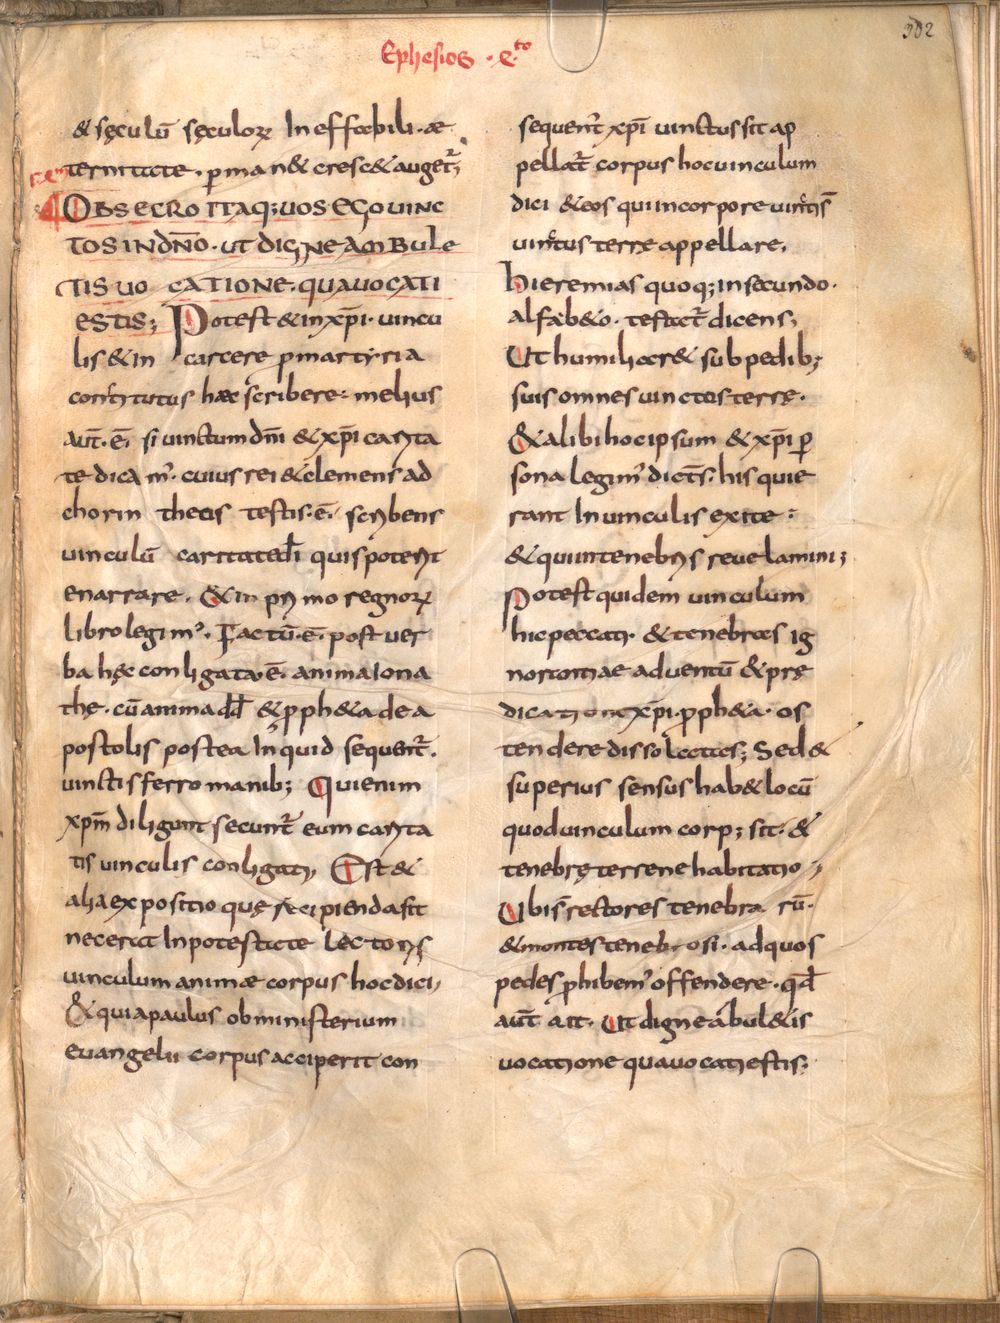 302
Ephesios · e·to
& sęculū sęculorꝝ Ineffabili·ae
ternitate· ꝑman& cresc& auget᷑;
OBSECRO ITAQ; VOS EGO VINC
TOS IN DN̄O· UT DIGNE AMBULE
TIS VO CATIONE· QUA VOCATI
ESTIS; Potest & in xp̄i· vincu
lis & in carcere ꝑ martyria
constitutus haec scribere· melius
aut̄·ē· si vinctum dn̄i & xp̄i carita
te dicam᾽· cuius rei & clemens ad
chorin theos testis·ē· scribens
vinculū caritatē dī quis poterit
enarrare· & in primo regnorꝝ
libro legim᾽· Factū·ē· post ver
ba hęc conligata·ē· anima Iona
thę· cū anima dd̄ & ꝓph&a de a
postolis postea Inquid sequent᷑·
vinctis ferro manib; Qui enim
xp̄m diligunt secunt᷑ eum carita
tis vinculis conligati, Est &
alia expositio quę recipienda sit
nec erit In potestate lectoris
vinculum animae corpus hoc dici,
& quia paulus ob ministerium
evangelii corpus acciperit con
sequent᷑ xp̄i vinctus sit ap
pellat᷑ corpus hoc vinculum
dici & eos qui in corpore vinctīs
vinctus terrę appellare,
hieremias quoq; in secundo·
alfab&o· testat᷑ dicens,
Ut humiliar& sub pedib;
suis omnes vinctos terrę·
& alibi hoc ipsum & xp̄i ꝑ
sona legim᾽ dicēs· his qui e
rant In vinculis exite·
& qui in tenebris revelamini;
Potest quidem vinculum
hic peccati· & tenebras ig
norantiae adventū & prę
dicationē xp̄i· ꝓph&a· os
tendere dissolventes; Sed &
superius sensus hab& locū
quod vinculum corp; sit· &
tenebrę terrene habitatio,
Ubi s̄ rectores tenebrarū·
& montes tenebrosi· ad quos
pedes ꝓhibem᾽ offendere· qd̄
aut̄ ait· Ut digne ābul&is
vocatione qua vocati estis;